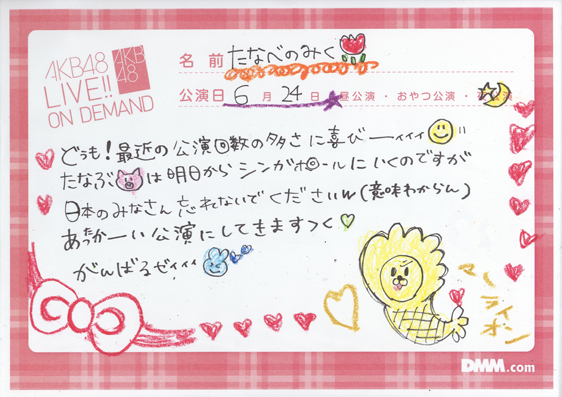 AKB48
LIVE!!
ON DEMAND
AKB
48
名 前 たなべのみく
公演日 6 月 24 日 昼公演・おやつ公演・夜公演
どうも!最近の公演回数の多さに喜びーィィィ
たなぶは明日からシンガポールにいくのですが
日本のみなさん忘れないでくださいw(意味わからん)
あったかーい公演にしてきますっく
がんばるぜィィィ
マーライオン
DMM.com